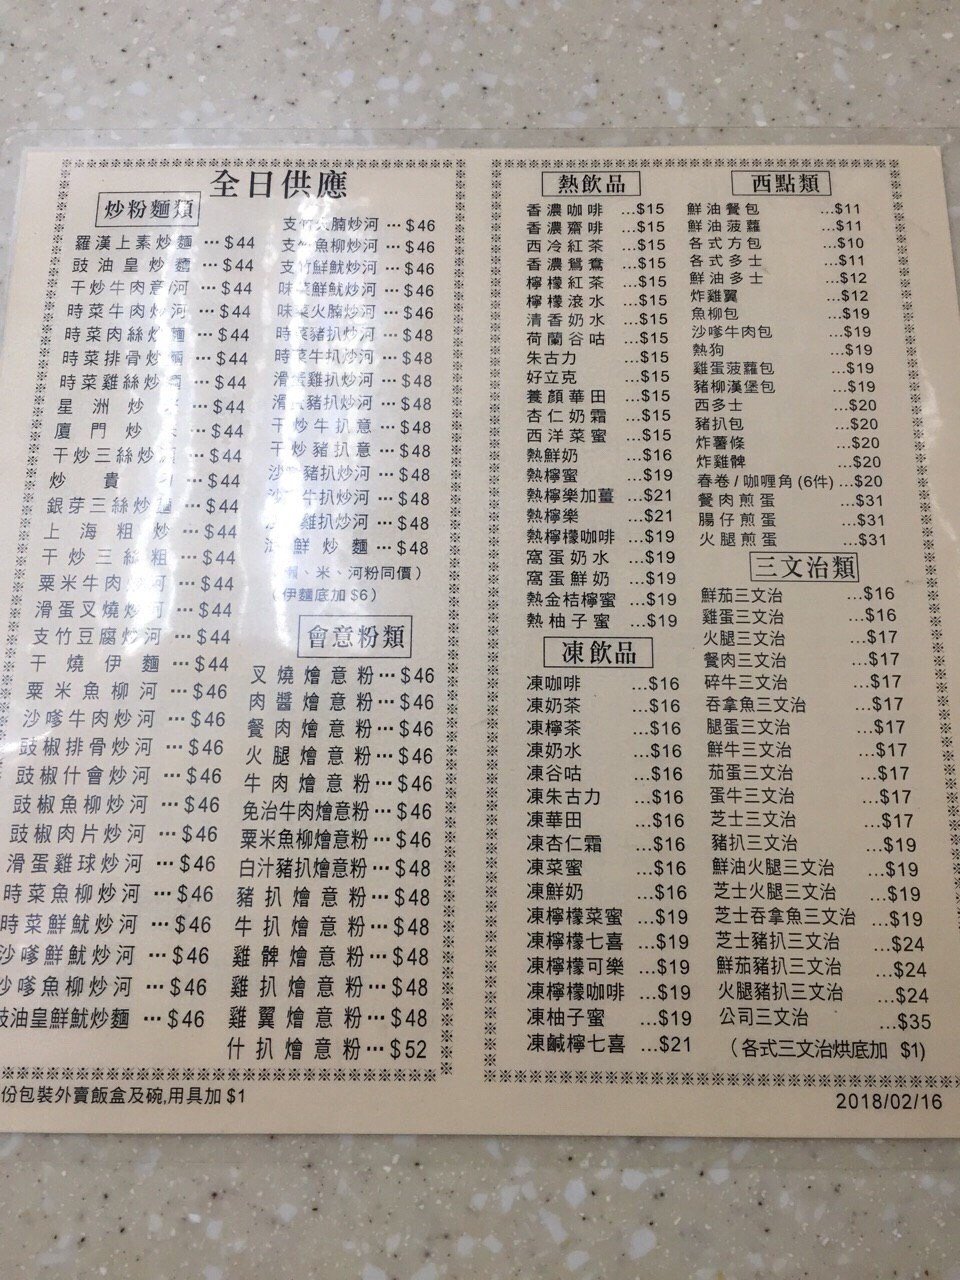 全日供應
炒粉麵類
羅漢上素炒麵 …$44
豉油皇炒麵 …$44
干炒牛肉意/河 …$44
時菜牛肉炒河 …$44
時菜肉絲炒麵 …$44
時菜排骨炒麵 …$44
時菜雞絲炒 …$44
星洲炒 …$44
廈門炒 …$44
干炒三絲炒 …$44
炒貴 …$44
銀芽三絲炒麵 …$44
上海粗炒 …$44
干炒三絲粗 …$44
粟米牛肉 河 …$44
滑蛋叉燒炒河 …$44
支竹豆腐炒河 …$44
干燒伊麵 …$44
粟米魚柳河 …$46
沙嗲牛肉炒河 …$46
豉椒排骨炒河 …$46
豉椒什會炒河 …$46
豉椒魚柳炒河 …$46
豉椒肉片炒河 …$46
滑蛋雞球炒河 …$46
時菜魚柳炒河 …$46
時菜鮮魷炒河 …$46
沙嗲鮮魷炒河 …$46
沙嗲魚柳炒河 …$46
豉油皇鮮魷炒麵 …$46
支竹火腩炒河 …$46
支竹魚柳炒河 …$46
支竹鮮魷炒河 …$46
味菜鮮魷炒河 …$46
味菜火腩炒河 …$46
時菜豬扒炒河 …$48
時菜牛扒炒河 …$48
滑蛋雞扒炒河 …$48
滑蛋豬扒炒河 …$48
干炒牛扒意 …$48
干炒豬扒意 …$48
沙嗲豬扒炒河 …$48
沙嗲牛扒炒河 …$48
沙嗲雞扒炒河 …$48
海鮮炒麵 …$48
、米、河粉同價)
(伊麵底加 $6)
會意粉類
叉燒燴意粉…$46
肉醬燴意粉…$46
餐肉燴意粉…$46
火腿燴意粉…$46
牛肉燴意粉…$46
免治牛肉燴意粉…$46
粟米魚柳燴意粉…$46
白汁豬扒燴意粉…$48
豬扒燴意粉…$48
牛扒燴意粉…$48
雞髀燴意粉…$48
雞扒燴意粉…$48
雞翼燴意粉…$48
什扒燴意粉…$52
熱飲品
香濃咖啡 …$15
香濃齋啡 …$15
西冷紅茶 …$15
香濃鴛鴦 …$15
檸檬紅茶 …$15
檸檬滾水 …$15
清香奶水 …$15
荷蘭谷咕 …$15
朱古力 …$15
好立克 …$15
養顏華田 …$15
杏仁奶霜 …$15
西洋菜蜜 …$15
熱鮮奶 …$16
熱檸蜜 …$19
熱檸樂加薑 …$21
熱檸樂 …$21
熱檸檬咖啡 …$19
窩蛋奶水 …$19
窩蛋鮮奶 …$19
熱金桔檸蜜 …$19
熱柚子蜜 …$19
凍飲品
凍咖啡 …$16
凍奶茶 …$16
凍檸茶 …$16
凍奶水 …$16
凍谷咕 …$16
凍朱古力 …$16
凍華田 …$16
凍杏仁霜 …$16
凍菜蜜 …$16
凍鮮奶 …$16
凍檸檬菜蜜 …$19
凍檸檬七喜 …$19
凍檸檬可樂 …$19
凍檸檬咖啡 …$19
凍柚子蜜 …$19
凍鹹檸七喜 …$21
西點類
鮮油餐包 …$11
鮮油菠蘿 …$11
各式方包 …$10
各式多士 …$11
鮮油多士 …$12
炸雞翼 …$12
魚柳包 …$19
沙嗲牛肉包 …$19
熱狗 …$19
雞蛋菠蘿包 …$19
豬柳漢堡包 …$19
西多士 …$20
豬扒包 …$20
炸薯條 …$20
炸雞髀 …$20
春卷/咖喱角(6件) …$20
餐肉煎蛋 …$31
腸仔煎蛋 …$31
火腿煎蛋 …$31
三文治類
鮮茄三文治 …$16
雞蛋三文治 …$16
火腿三文治 …$17
餐肉三文治 …$17
碎牛三文治 …$17
吞拿魚三文治 …$17
腿蛋三文治 …$17
鮮牛三文治 …$17
茄蛋三文治 …$17
蛋牛三文治 …$17
芝士三文治 …$17
豬扒三文治 …$19
鮮油火腿三文治 …$19
芝士火腿三文治 …$19
芝士吞拿魚三文治 …$19
芝士豬扒三文治 …$24
鮮茄豬扒三文治 …$24
火腿豬扒三文治 …$24
公司三文治 …$35
(各式三文治烘底加 $1)
份包裝外賣飯盒及碗,用具加 $1
2018/02/16